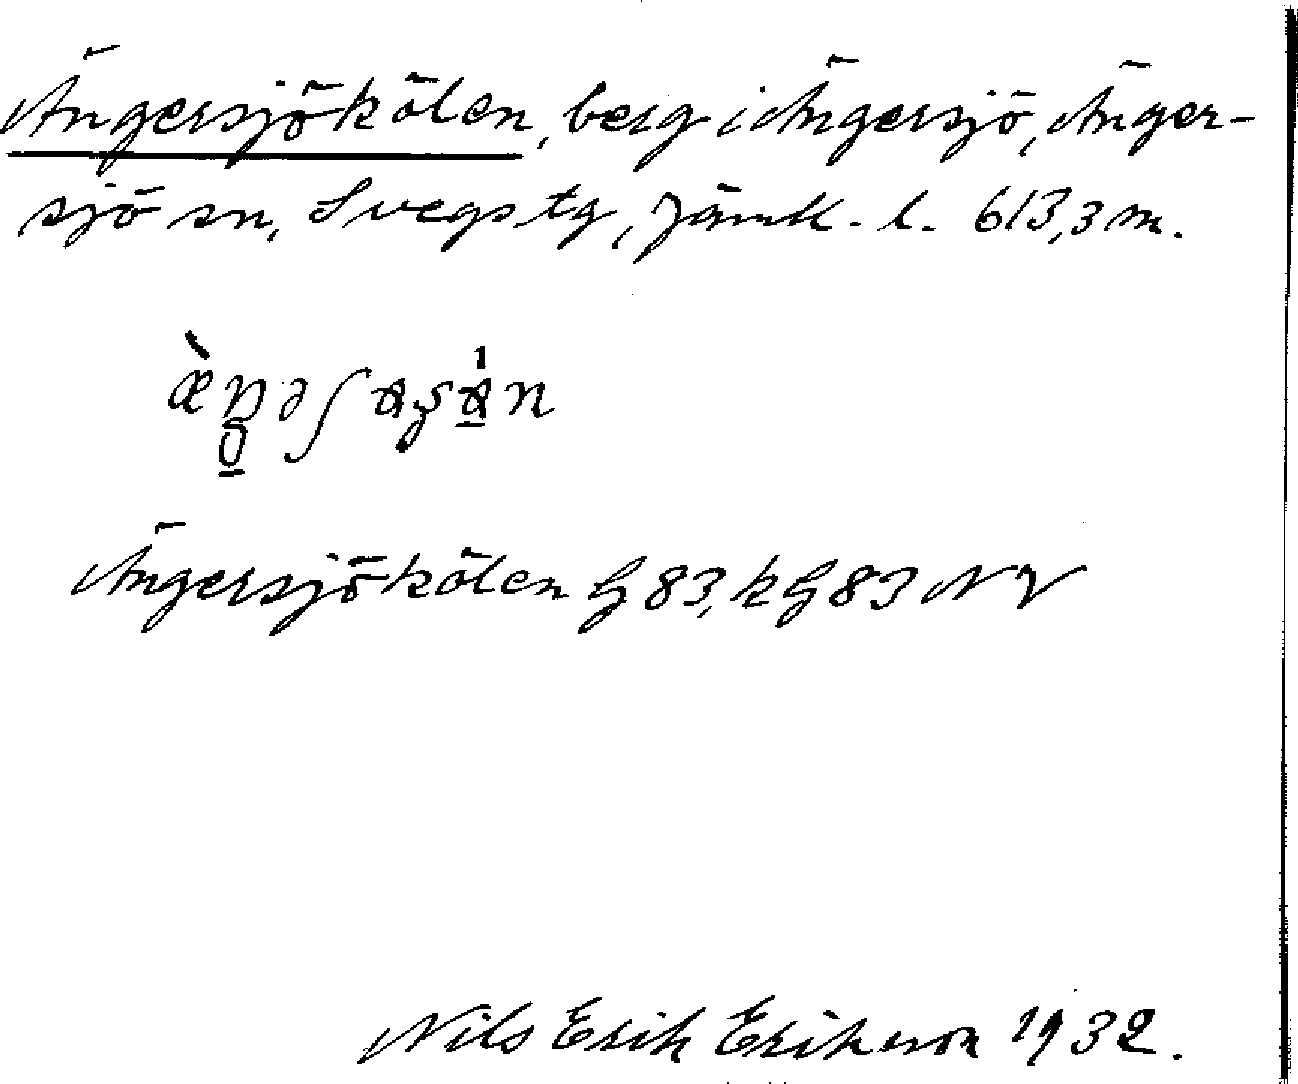 Ängersjökölen, berg i Ängersjö, Änger-
sjö sn, Svegs tg, Jämtl. l. 613,3 m.
Ängersjökölen G 83, k G 83 NV
Nils Erik Erikson 1932.